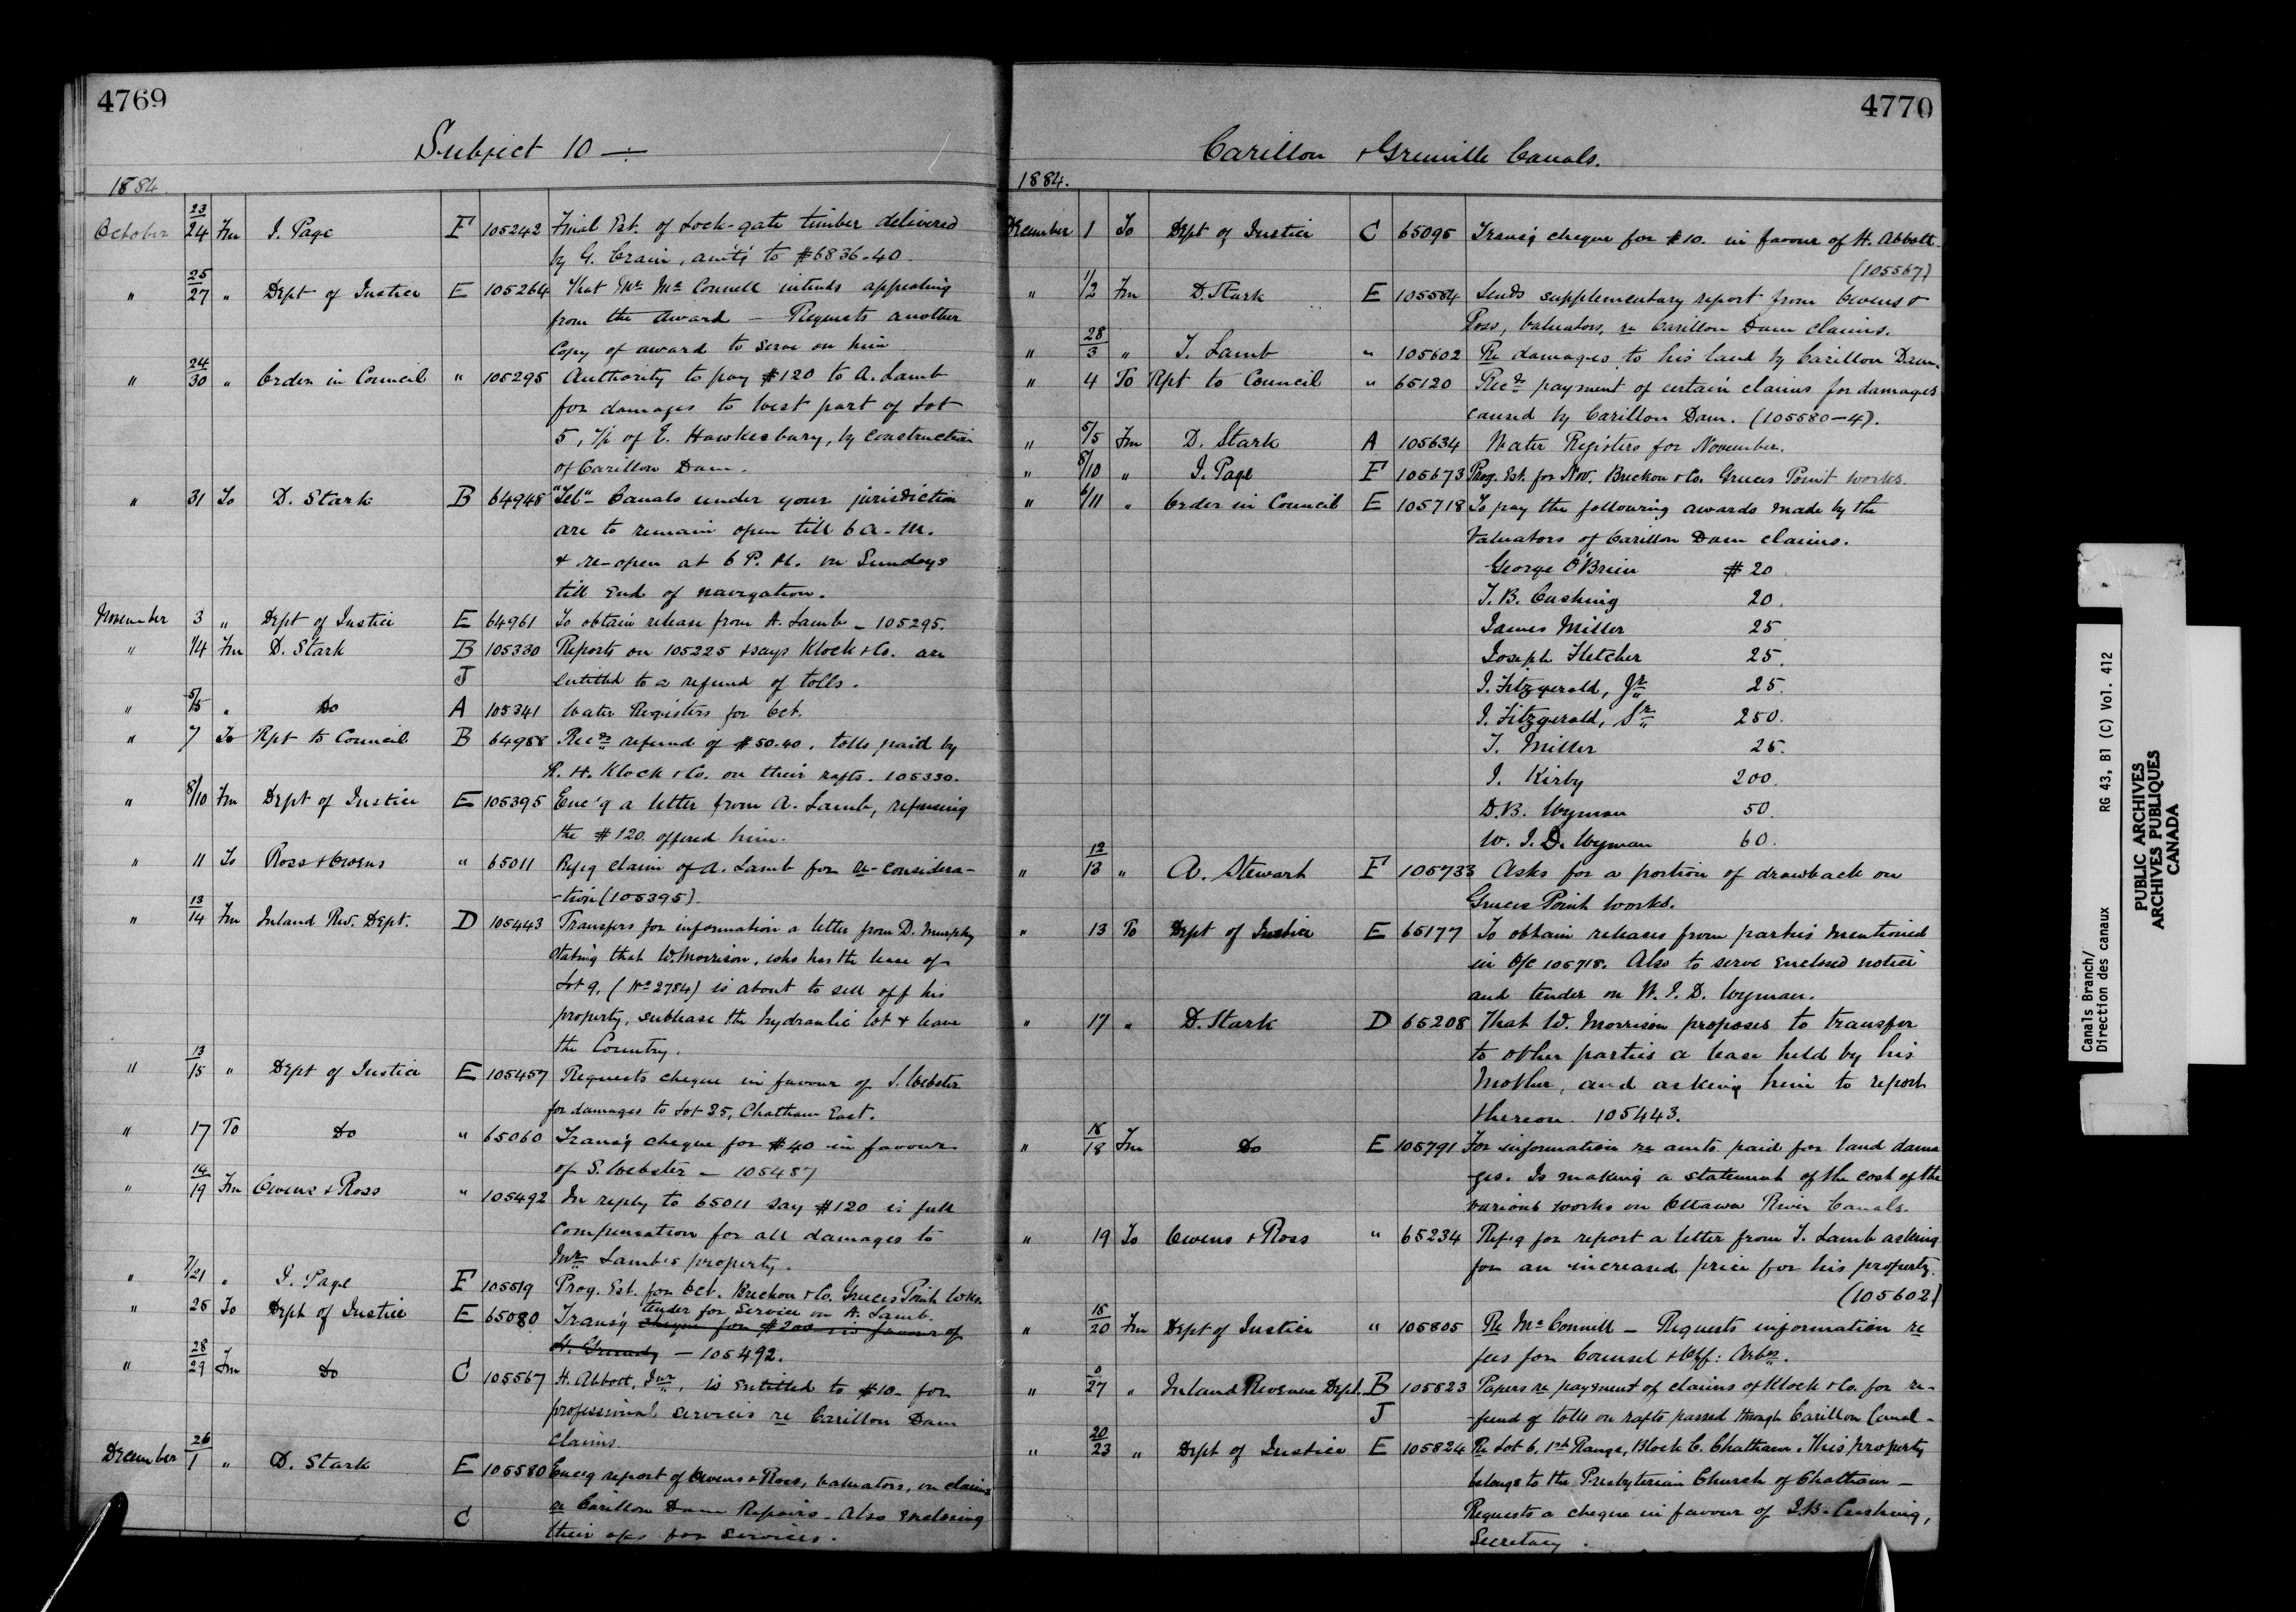 4769
Subject 10 —
1884.
October 23/24 Fm J. Page F 105242 Final Est. of Lock-gate timber delivered
by G. Crain, amt'g to $6836.40.
" 25/27 " Dept of Justice E 105264 That Mr. McConnell intends appealing
from the award — Requests another
copy of award to serve on him
" 24/30 " Order in Council " 105295 Authority to pay $120 to A. Lamb
for damages to West part of Lot
5, of E. Hawkesbury, by construction
of Carillon Dam.
" 31 To D. Stark B 64948 "Tel" Canals under your jurisdiction
are to remain open till 6 A.M.
& re-open at 6 P.M. on Sundays
till End of navigation.
November 3 " Dept of Justice E 64961 To obtain release from A. Lamb – 105295.
" 1/4 Fm D. Stark B 105330 Reports on 105225 & says Klock & Co. are
J entitled to a refund of tolls.
" 5/5 " Do A 105341 Water Registers for Oct.
" 7 To Rpt to Council B 64988 Recds refund of $50.40, tolls paid by
R. H. Klock & Co. on their rafts. 105330.
" 8/10 Fm Dept of Justice E 105395 Enc'g a letter from A. Lamb, refusing
the $120 offered him.
" 11 To Ross & Owens " 65011 Refg claim of A. Lamb for re-considera-
-tion (105395).
" 13/14 Fm Inland Rev. Dept. D 105443 Transfers for information a letter from D. Murphy
stating that W. Morrison, who has the lease of
Lot 9, (No 2784) is about to sell off his
property, sublease the hydraulic lot & leave
the Country.
" 13/15 " Dept of Justice E 105457 Requests cheque in favour of S. Webster
for damages to Lot 25, Chatham East.
" 17 To Do " 65060 Transg cheque for $40 in favour
of S. Webster – 105487
" 14/19 Fm Owens & Ross " 105492 In reply to 65011 say $120 is full
compensation for all damages to
Mr. Lamb's property.
" 7/21 " J. Page F 105519 Prog. Est. for Oct. Breckon & Co. Greeces Point Wks.
" 25 To Dept of Justice E 65080 Transg tender for service on A. Lamb.
cheque for $200 in favour of
— 105492.
" 28/29 Fm Do C 105567 H. Abbott, Junr, is entitled to $10– for
professional services re Carillon Dam
Claims.
December 26/1 " D. Stark E 105580 Encg report of Owens & Ross, valuators, on claims
C re Carillon Dam Repairs. Also enclosing
their a/cs for services.
4770
Carillon & Grenville Canals.
1884.
December 1 To Dept of Justice C 65095 Transg cheque for $10. in favour of H. Abbott.
(105567)
" 1/2 Fm D. Stark E 105584 Sends supplementary report from Owens &
Ross, Valuators, re Carillon Dam claims.
" 28/3 " T. Lamb " 105602 Re damages to his land by Carillon Dam.
" 4 To Rpt to Council " 65120 Recds payment of certain claims for damages
caused by Carillon Dam. (105580–4).
" 5/5 Fm D. Stark A 105634 Water Registers for November.
" 8/10 " J. Page F 105673 Prog. Est. for Nov. Breckon & Co. Greeces Point works.
" 6/11 " Order in Council E 105718 To pay the following awards made by the
Valuators of Carillon Dam claims.
George O'Brien $20.
T. B. Cushing 20.
James Miller 25
Joseph Fletcher 25.
J. Fitzgerald, Jr 25.
J. Fitzgerald, Sr 250.
T. Miller 25.
J. Kirby 200.
D. B. Wyman 50.
W. J. D. Wyman 60.
" 12/13 " A. Stewart F 105733 Asks for a portion of drawback on
Greeces Point Works.
" 13 To Dept of Justice E 65177 To obtain releases from parties mentioned
in O/C 105718. Also to serve Enclosed notice
and tender on W. J. D. Wyman.
" 17 " D. Stark D 65208 That W. Morrison proposes to transfer
to other parties a lease held by his
Mother, and asking him to report
thereon. 105443.
" 18/18 Fm Do E 105791 For information re amts. paid for land dama
-ges. Is making a statement of the cost of the
various works on Ottawa River Canals.
" 19 To Owens & Ross " 65234 Refg for report a letter from T. Lamb asking
for an increased price for his property.
(105602)
" 18/20 Fm Dept of Justice " 105805 Re McConnell – Requests information re
fees for Counsel & Off: Arbrs.
" 27 " Inland Revenue Dept. B 105823 Papers re payment of claims of Klock & Co. for re-
J -fund of tolls on rafts passed through Carillon Canal–
" 20/23 " Dept of Justice E 105824 Re Lot 6, 1st Range, Block C. Chatham. This property
belongs to the Presbyterian Church of Chatham –
Requests a cheque in favour of J.B. Cushing,
Secretary.
Canals Branch/
Direction des canaux RG 43, B1 (C) Vol. 412
PUBLIC ARCHIVES
ARCHIVES PUBLIQUES
CANADA